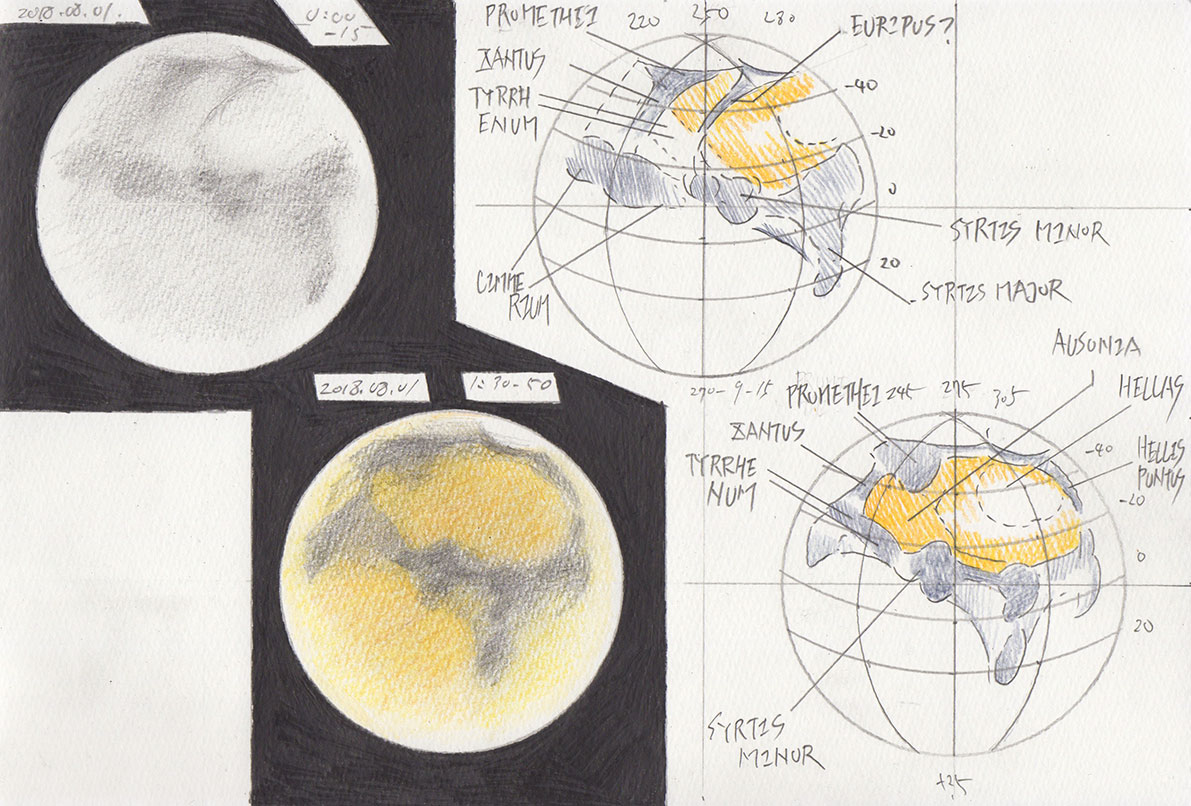 2018.08.01.
0:00
-15
PROMETHEI
220
250
280
EURIPUS?
XANTUS
TYRRH
ENUM
-40
-20
0
20
SYRTIS MINOR
SYRTIS MAJOR
CIMME
RIUM
2018.08.01
1:30-50
AUSONIA
PROMETHEI
245
275
305
HELLAS
XANTUS
-40
HELLES
PONTUS
TYRRHE
NUM
-20
0
20
SYRTIS
MINOR